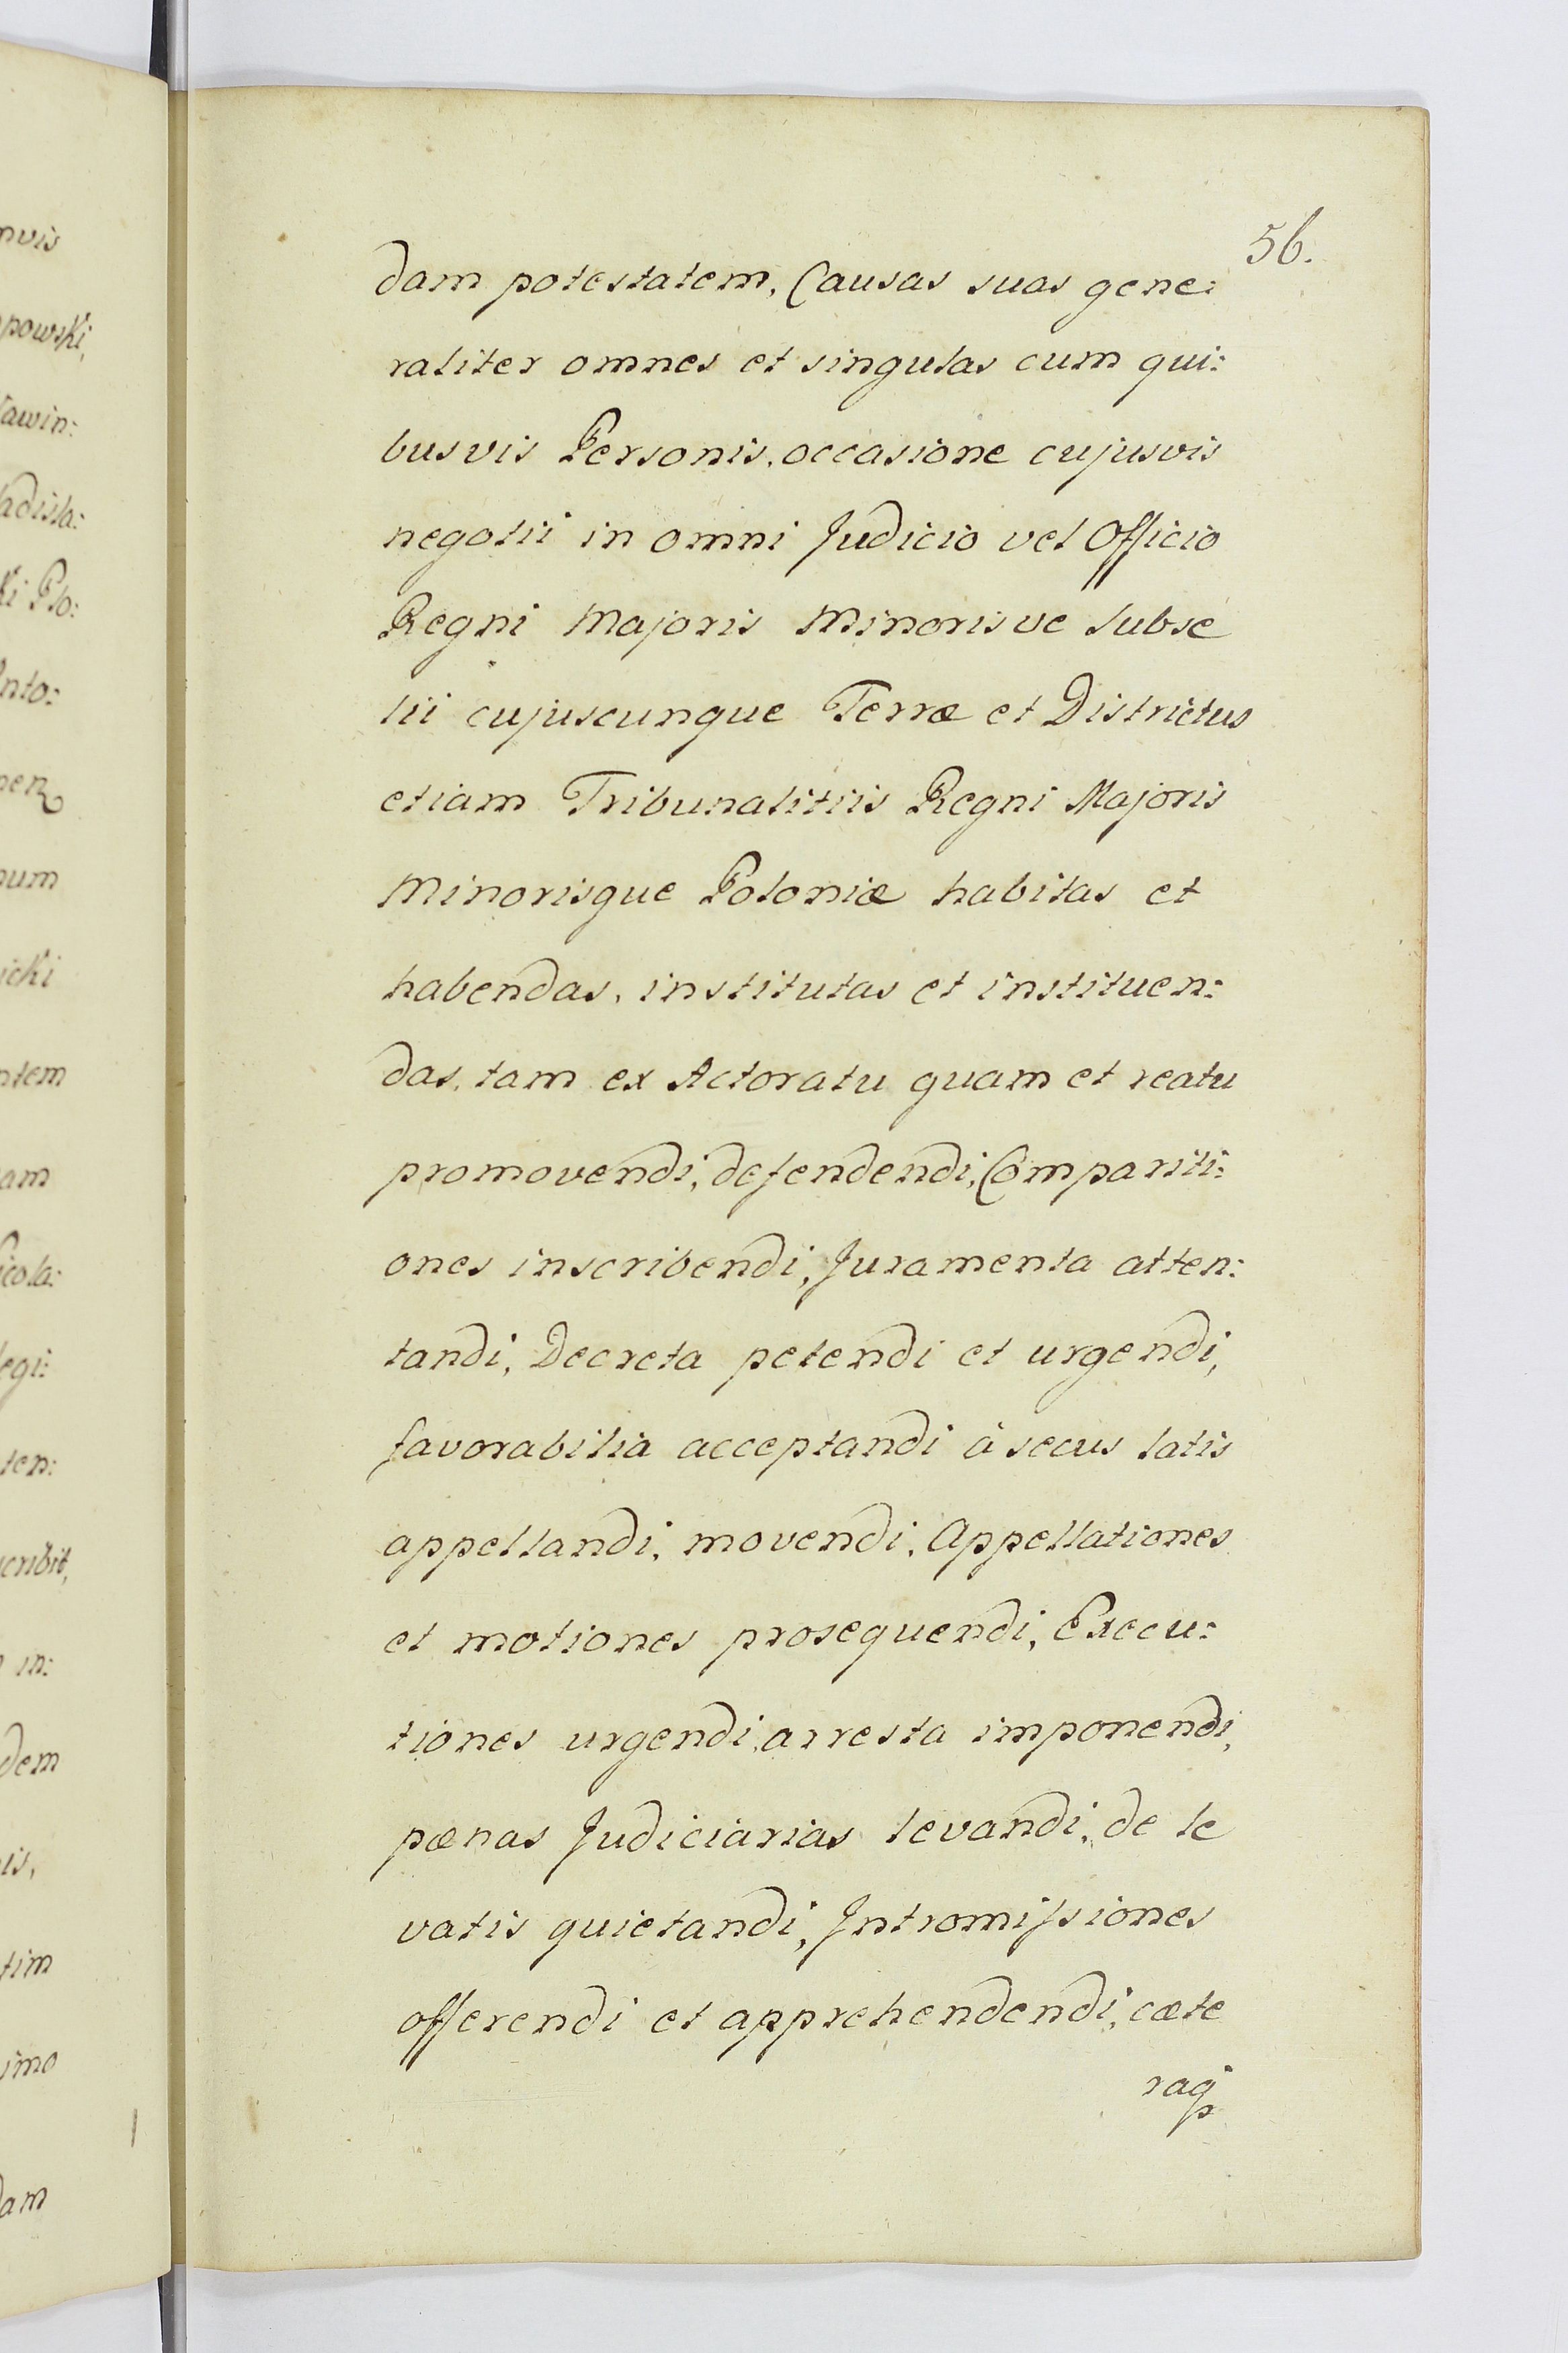 56.
dam potestatem, Causas suas gene:
raliter omnes et singulas cum qui:
busvis Personis, occasione cujusvis
negotii in omni Judicio vel Officio
Regni Majoris Minorisve Subse
lii cujuscunque Terræ et Districtus
etiam Tribunalitiis Regni Majoris
Minorisque Poloniæ habitas et
habendas, institutas et instituen:
das, tam ex Actoratu quam et reatu
promovendi, defendendi, Compariti:
ones inscribendi, Juramenta atten:
tandi, Decreta petendi et urgendi,
favorabilia acceptandi à secus latis
appellandi, movendi, Appellationes
et motiones prosequendi, Execu:
tiones urgendi, arresta imponendi,
pœnas Judiciarias levandi, de le
vatis quietandi, Intromissiones
offerendi et apprehendendi, cæte
raq
nvis
powski,
awin:
adisla:
ki Plo:
nto:
num
icki
ntem
am
icola:
egi:
ten:
cribit,
in:
dem
is,
tim
imo
dam